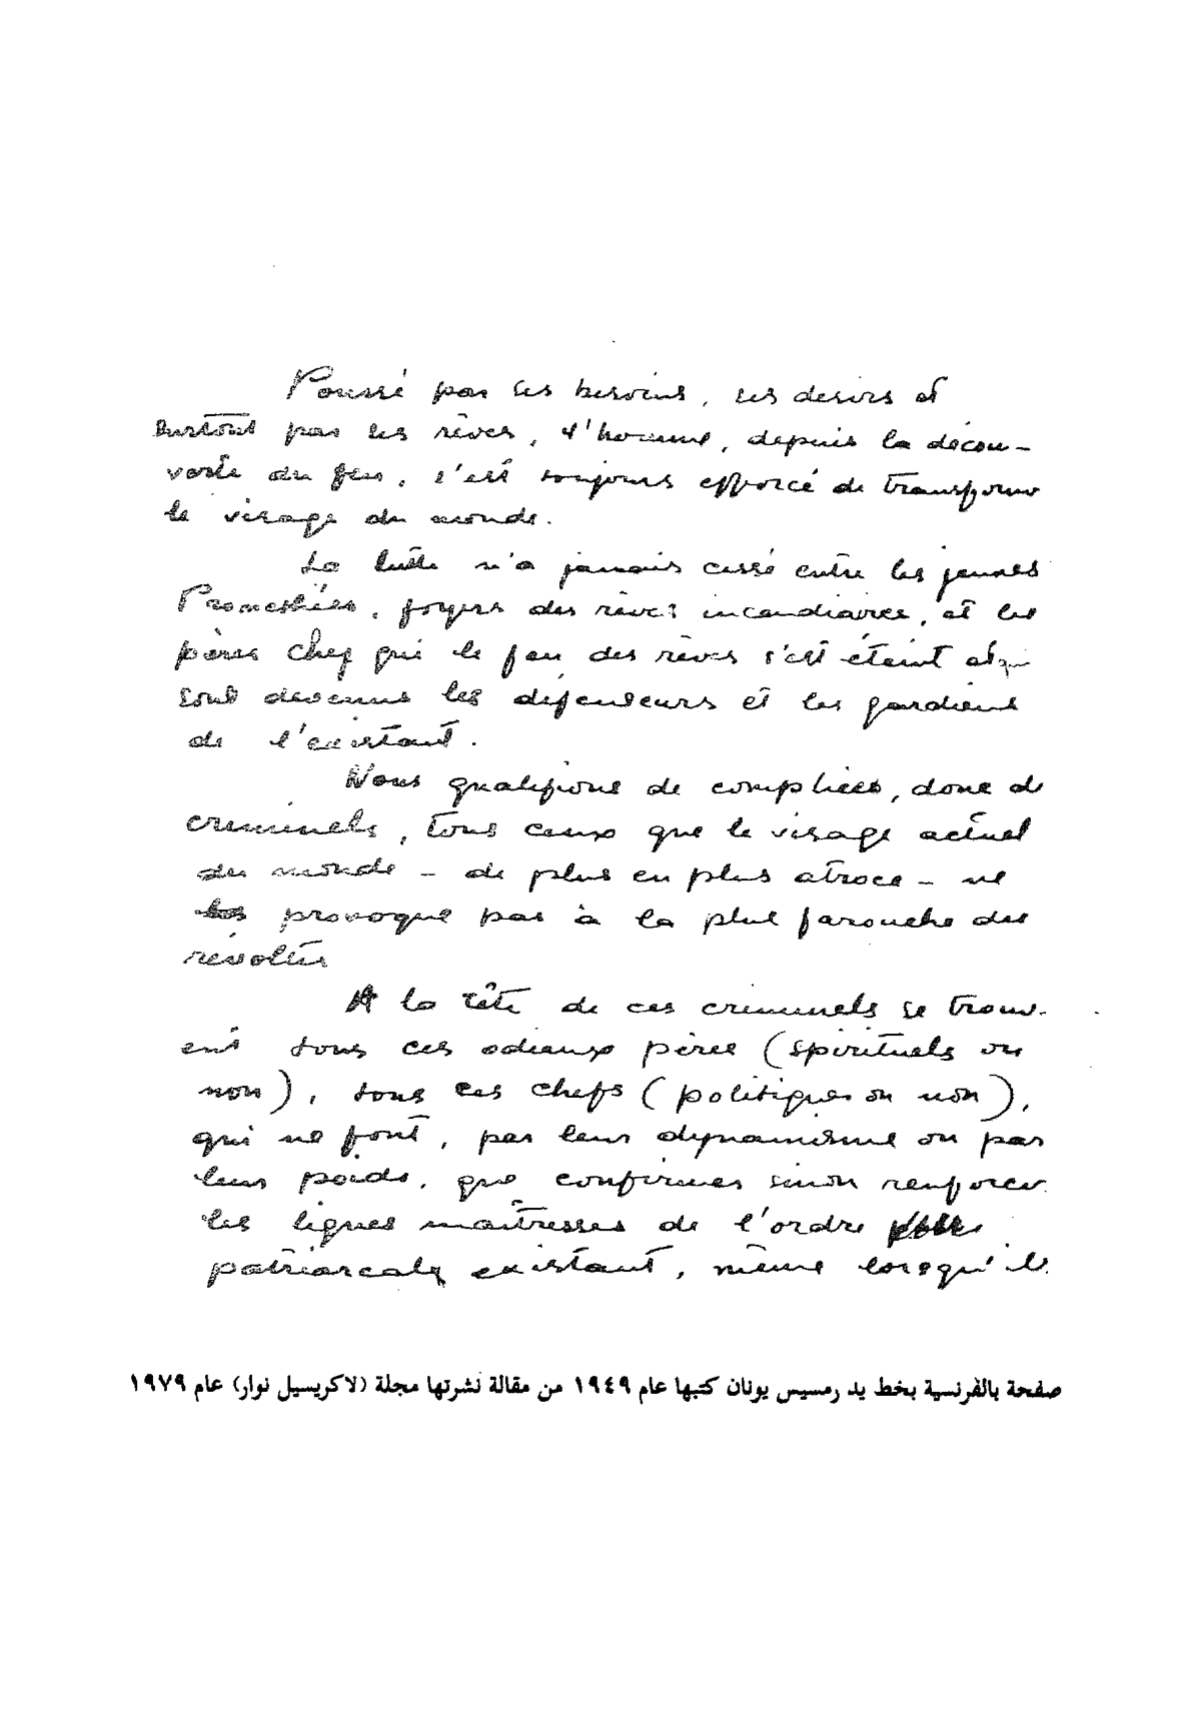 Poussé par ses besoins, ses desirs et
surtout par ses rêves, l'homme, depuis la décou-
verte du feu, s'est toujours efforcé de transformer
le visage du monde.
La lutte n'a jamais cessé entre les jeunes
Promethées, foyers des rêves incendiaires, et les
pères chez qui le feu des rêves s'est éteint et qui
sont devenus les défenseurs et les gardiens
de l'existant.
Nous qualifions de complices, donc de
criminels, tous ceux que le visage actuel
du monde - de plus en plus atroce - ne
provoque pas à la plus farouche des
révoltes
A la tête de ces criminels se trouv-
ent tous ces odieux pères (spirituels ou
non), tous ces chefs (politiques ou non),
qui ne font, par leur dynamisme ou par
leur poids, que confirmer sinon renforcer
les lignes maîtresses de l'ordre
patriarcal existant, même lorsqu'ils
صفحة بالفرنسية بخط يد رمسيس يونان كتبها عام ١٩٤٩ من مقالة نشرتها مجلة (لاكريسيل نوار) عام ١٩٧٩